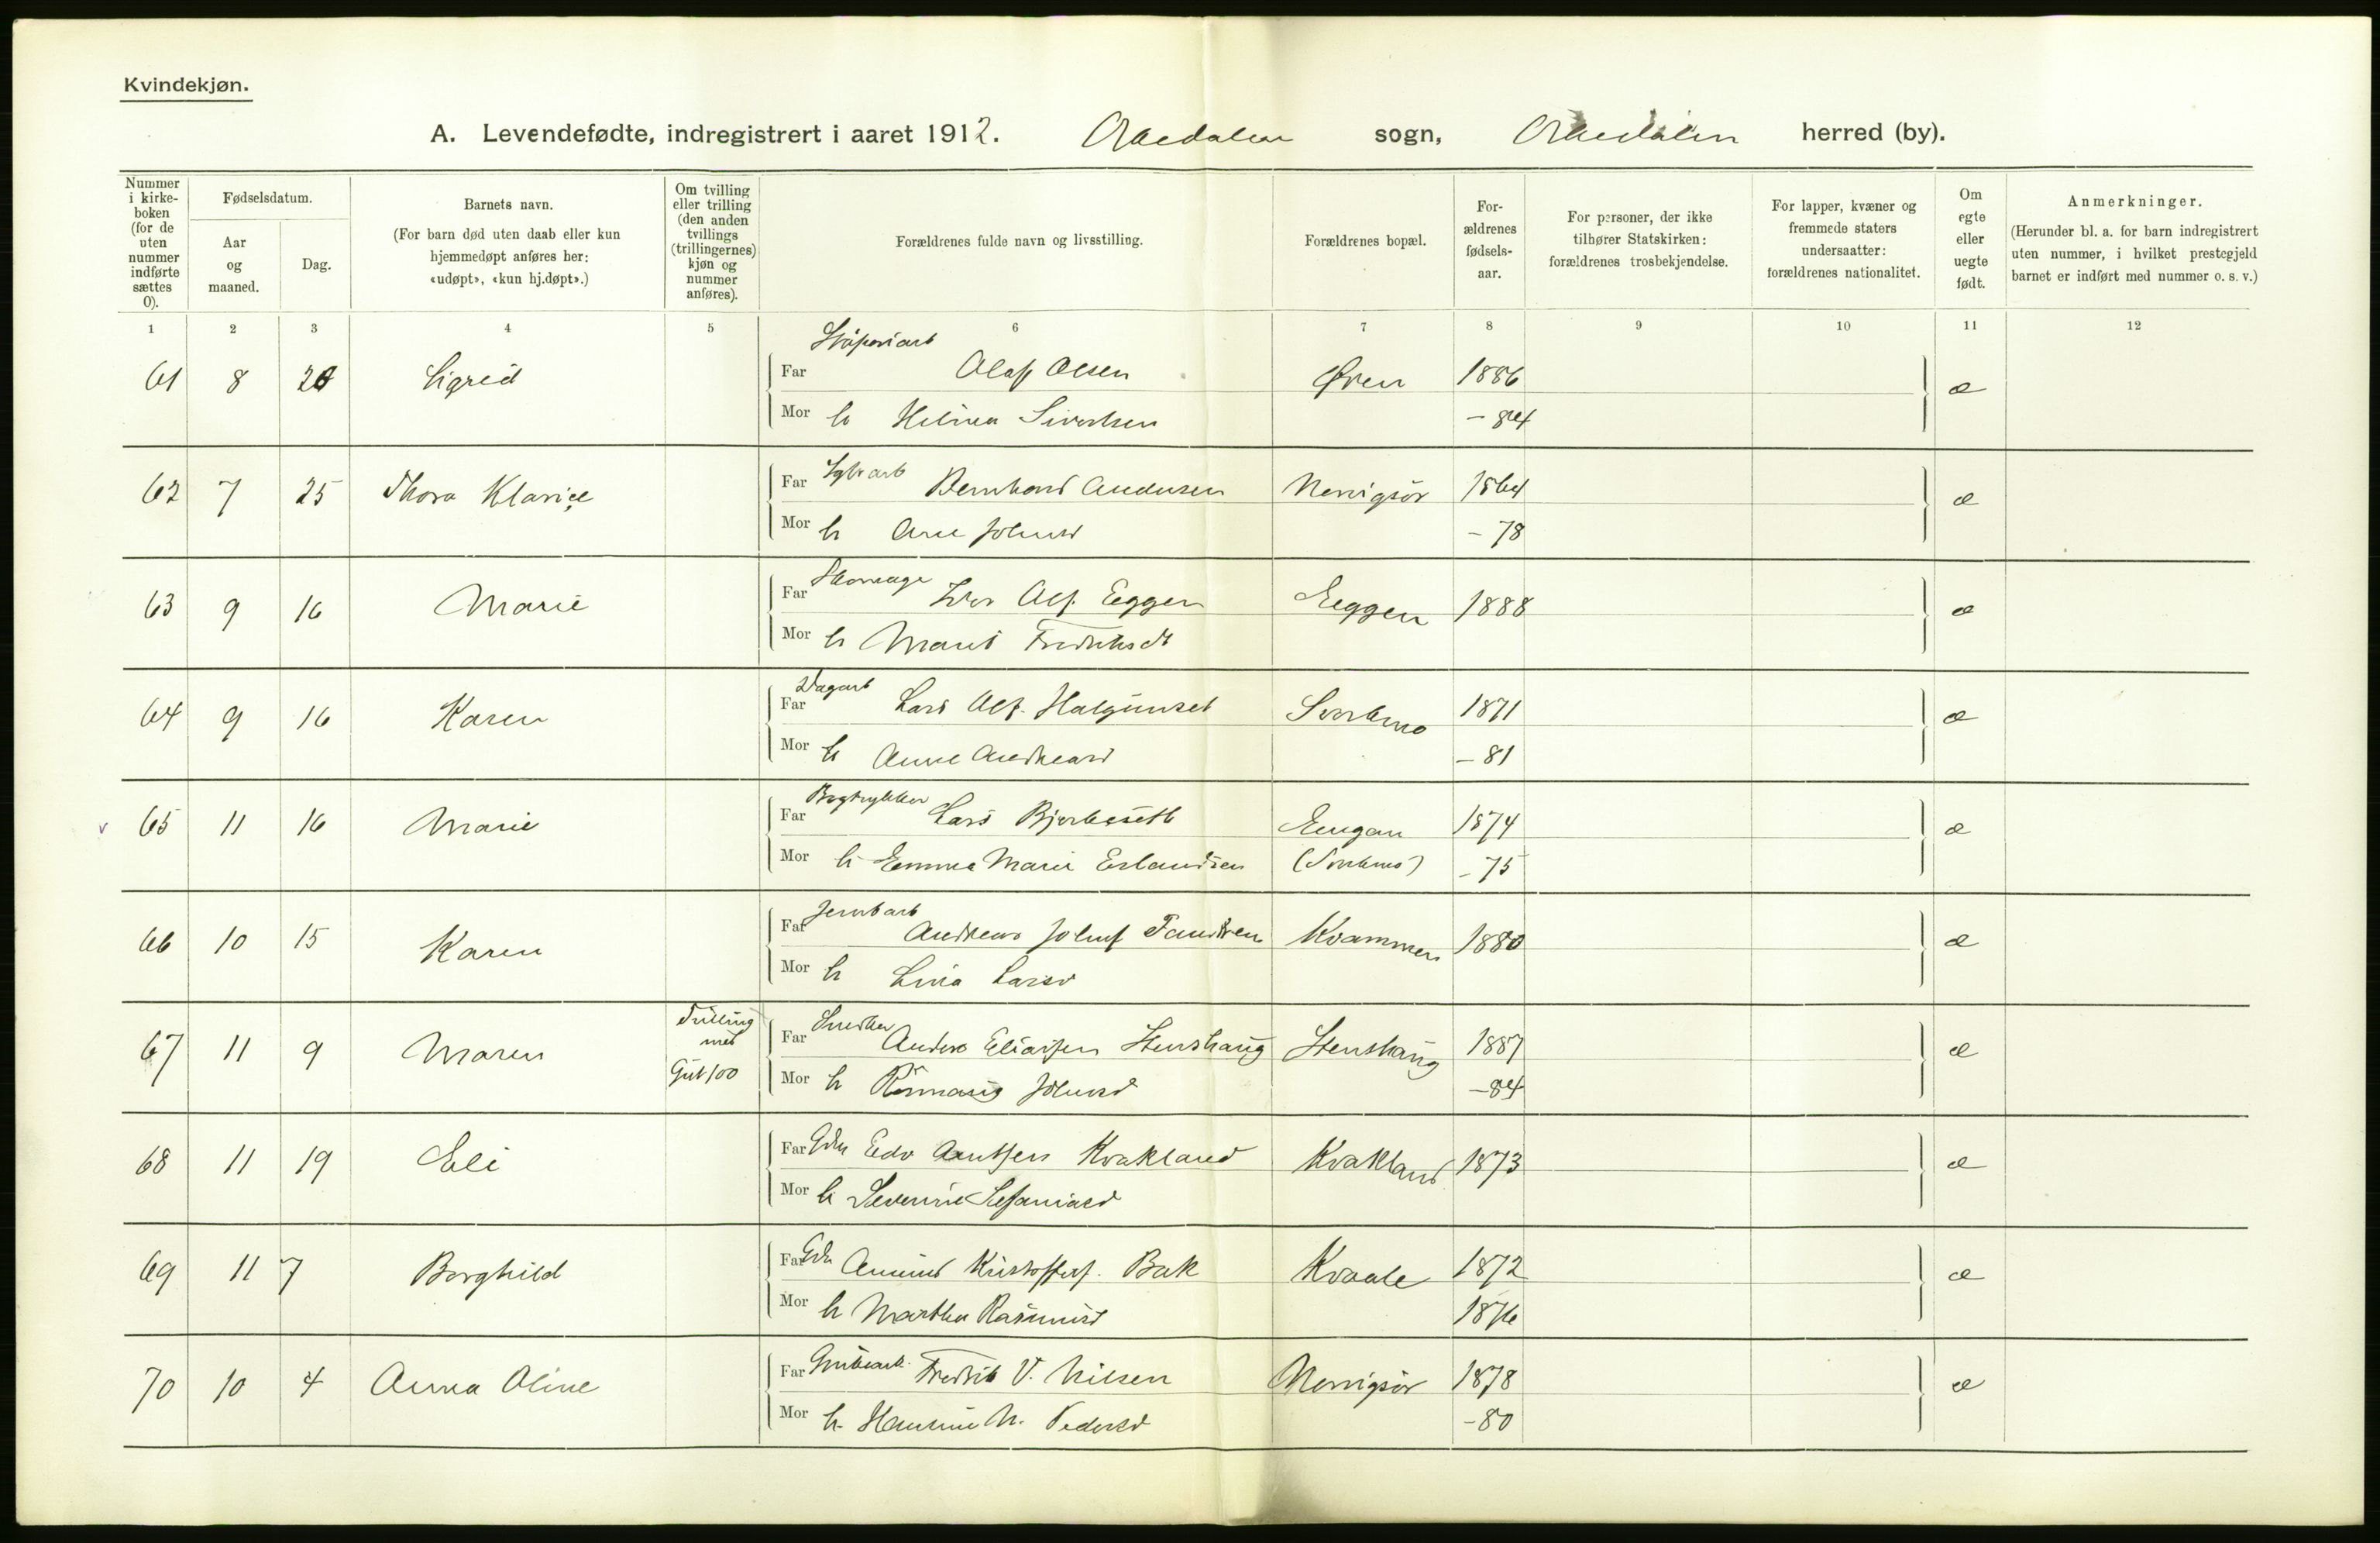 Kvindekjøn.
A. Levendefødte, indregistrert i aaret 1912. Orkedalen sogn, Orkedalen herred (by).
Nummer i kirke-boken (for de uten nummer indførte sættes 0).
Fødselsdatum.
Aar og maaned.
Dag.
Barnets navn.
(For barn død uten daab eller kun hjemmedøpt anføres her: «udøpt», «kun hj.døpt».)
Om tvilling eller trilling (den anden tvillings (trillingernes) kjøn og nummer anføres).
Forældrenes fulde navn og livsstilling.
Forældrenes bopæl.
For-ældrenes fødsels-aar.
For personer, der ikke tilhører Statskirken: forældrenes trosbekjendelse.
For lapper, kvæner og fremmede staters undersaatter: forældrenes nationalitet.
Om egte eller uegte født.
Anmerkninger.
(Herunder bl. a. for barn indregistrert uten nummer, i hvilket prestegjeld barnet er indført med nummer o. s. v.)
1 2 3 4 5 6 7 8 9 10 11 12
61 8 20 Sigrid Far Olaf Olsen Øren 1886 æ
Mor h Helmea Sivertsen - 84
62 7 25 Thora Klarice Far Bernhard Andersen 1864 æ
Mor h Ane Johnsd - 78
63 9 16 Marie Far Iver Olf. Eggen Eggen 1888 æ
Mor h Marit Fredriksdt
64 9 16 Karen Far Dagarb Lars Olf. Halgunset Svorkmo 1871 æ
Mor h Anne Andreasd - 81
65 11 16 Marie Far Bogtrykker Lars Bjerkeseth Eugan 1874 æ
Mor h Emma Marie Erlandsen (Svorkmo) - 75
66 10 15 Karen Far Jernbarb Andreas Johnsf Kvammen 1880 æ
Mor h Lina Larsd
67 11 9 Maren Tvilling med Gut 100 Far Snedker Anders Eliassen Stenshaug Stenshaug 1887 æ
Mor h Johnsd - 84
68 11 19 Eli Far Gdr Edv Arntsen Kvakland Kvakland 1873 æ
Mor h Severine Stefaniasd
69 11 7 Borghild Far Gdr Amund Kristoffersf. Bak Kvaale 1872 æ
Mor h Martha Rasmusd 1876
70 10 4 Anna Oline Far Grubearb. Fredrik V. Nilsen 1878 æ
Mor h Hansine M. Pedersd - 80